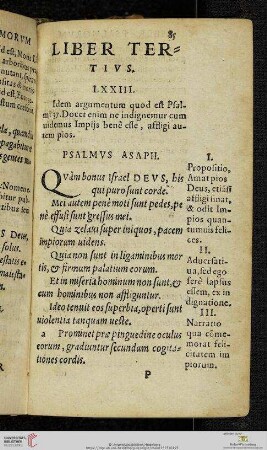 85
LIBER TER-
TIVS.
LXXIII.
Idem argumentum quod est Psal-
mi 37. Docet enim ne indignemur cum
uidemus Impijs benè esse, affligi au-
tem pios.
PSALMVS ASAPH.
Quàm bonus Israel DEVS, his
qui puro sunt corde.
Mei autem penè moti sunt pedes, pe
nè effusi sunt gressus mei.
Quia zelaui super iniquos, pacem
impiorum uidens.
Quia non sunt in ligaminibus mor
tis, & firmum palatium eorum.
Et in miseria hominum non sunt, &
cum hominibus non affliguntur.
Ideo tenuit eos superbia, operti sunt
uiolentia tanquam ueste.
a Prominet præ pinguedine oculus
eorum, gradiuntur secundum cogita-
tiones cordis.
P
I.
Propositio,
Amat pios
Deus, etiãsi
affligi sinat,
& odit Im
pios quan-
tumuis feli-
ces.
II.
Aduersati-
ua, sed ego
ferè lapsus
essem, ex in
dignatione.
III.
Narratio
qua cõme-
morat feli-
citatem im
piorum.